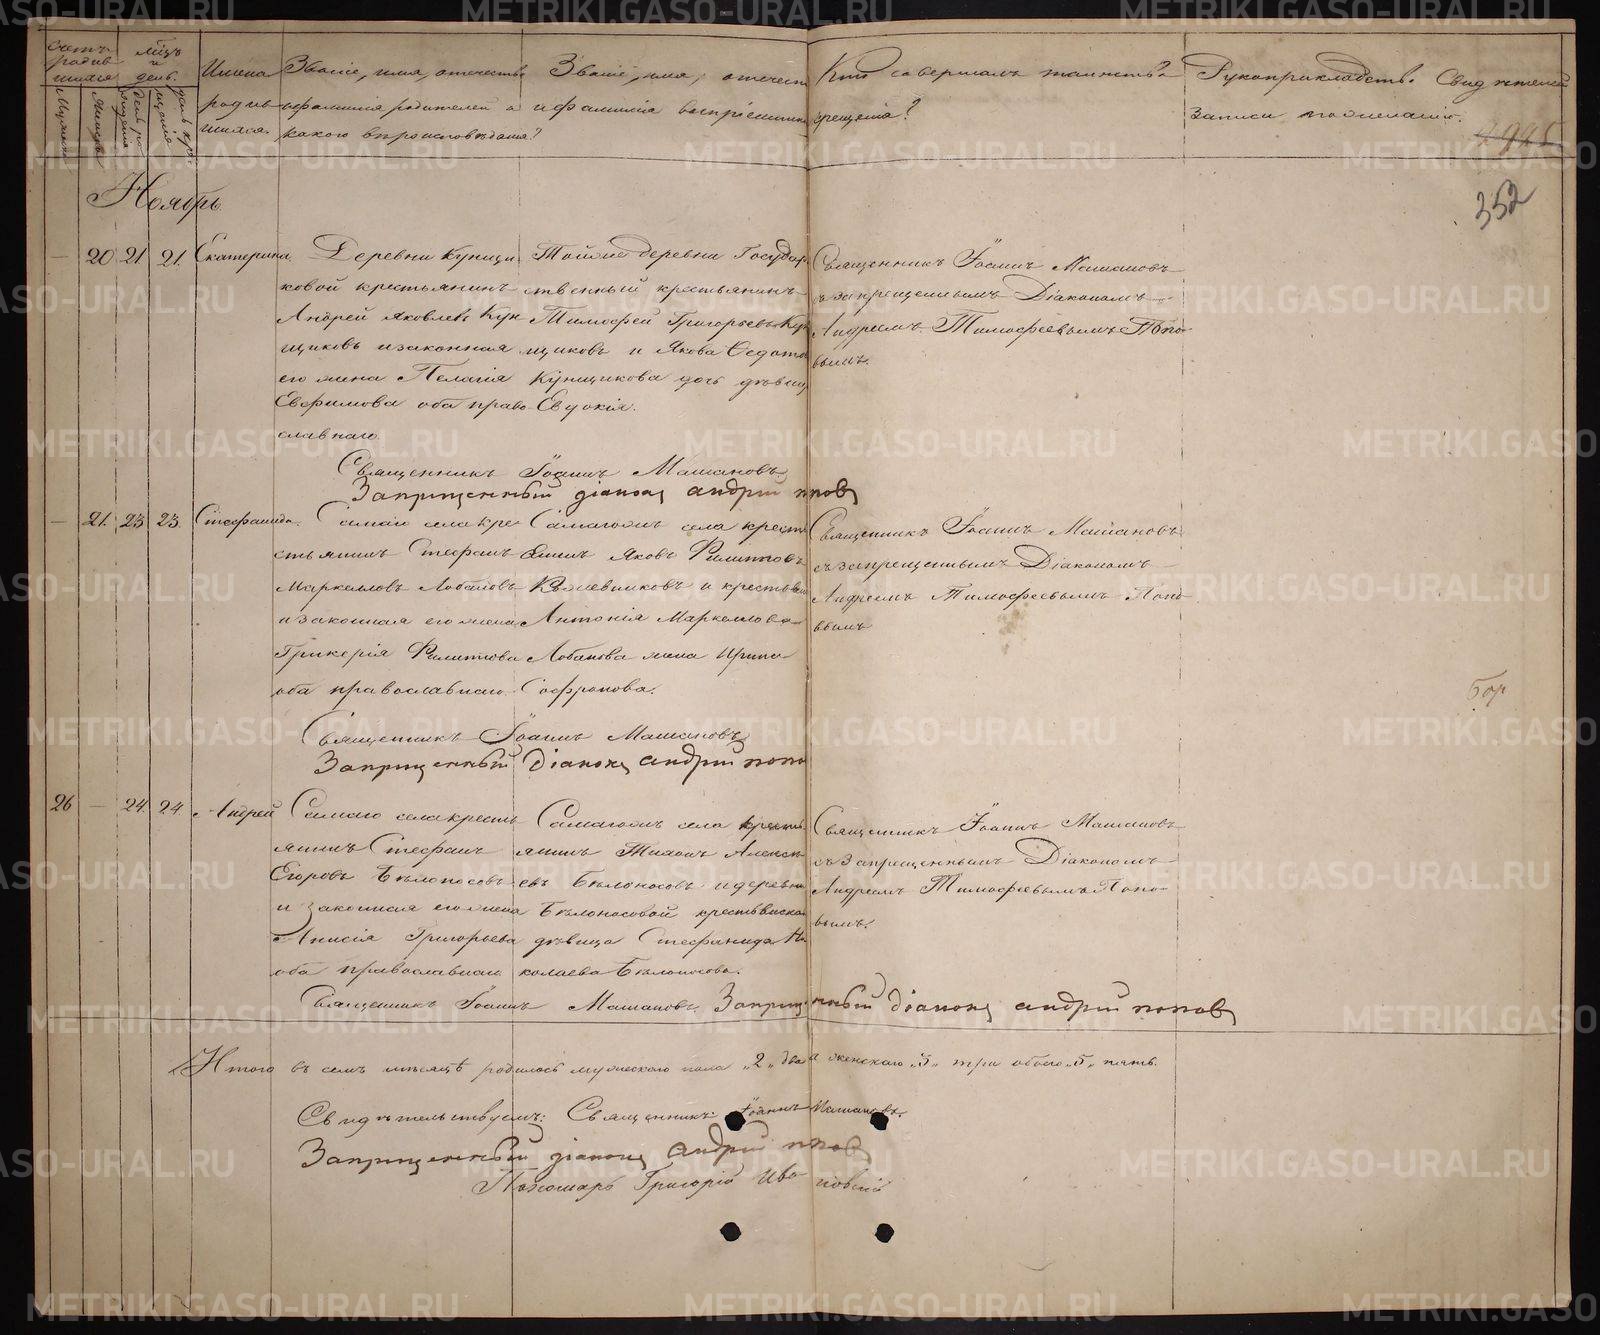 Счетъ родив шихся
Мѣсяцъ и день.
Имена родив шихся.
Званіе, имя, отечество и фамилія родителей и какого вѣроисповѣданія?
Званіе, имя, отечест и фамилія воспріемник
Кто совершалъ таинство крещенія?
Рукоприкладство свидѣтелей записи по желанію.
352
Ноябрь.
— 20 21 21. Екатерина
Деревни Кунщи
ковой крестьянинъ
Андрей Яковлевъ Кун
щиковъ и законная
его жена Пелагія
Евфимова оба право
славнаго.
Тойже деревни Государ
ственный крестьянинъ
Тимофей Григорьевъ Кун
щиковъ и Якова Ѳедота
Кунщикова дочь дѣвица
Евдокія.
Священникъ Іоаннъ Машановъ
съ запрещеннымъ Діакономъ
Андреемъ Тимофеевымъ Попо
вымъ.
Священникъ Іоаннъ Машановъ
Заприщенный діаконъ андрій попов
— 21. 23 23. Стефанида.
Самаго села кре
стьянинъ Стефанъ
Маркелловъ Лобановъ
и законная его жена
Гликерія Филиппова
оба православнаго.
Самагожъ села кресть
янинъ Яковъ Филипповъ
и крестьян
Антонія Маркеллова
Лобанова жена Ирина
Софронова.
Священникъ Іоаннъ Машановъ
съ запрещеннымъ Діакономъ
Андреемъ Тимофеевымъ Попо
вымъ
Священникъ Іоаннъ Машановъ
Заприщенный Діаконъ андрій попо
26 — 24. 24. Андрей
Самаго села кресть
янинъ Стефанъ
Егоровъ Бѣлоносовъ
и законная его жена
Анисія Григорьева
оба православнаго
Самагожъ села кресть
янинъ Тихонъ Алексѣ
евъ Бѣлоносовъ и деревни
Бѣлоносовой крестьянска
дѣвица Стефанида Ни
колаева Бѣлоносова.
Священникъ Іоаннъ Машановъ
съ Запрещеннымъ Діакономъ
Андреемъ Тимофеевымъ Попо
вымъ.
Священникъ Іоаннъ Машановъ. Заприщенный діаконъ андрій попов
Итого въ семъ мѣсяцѣ родилось мужескаго пола „2„ два и женскаго „3„ три обоего „5„ пять.
Свидѣтельствуемъ: Священникъ Іоаннъ Машановъ.
Заприщенный діаконъ андрій попов
Пономарь Григорій Ивановскій
METRIKI.GASO-URAL.RU